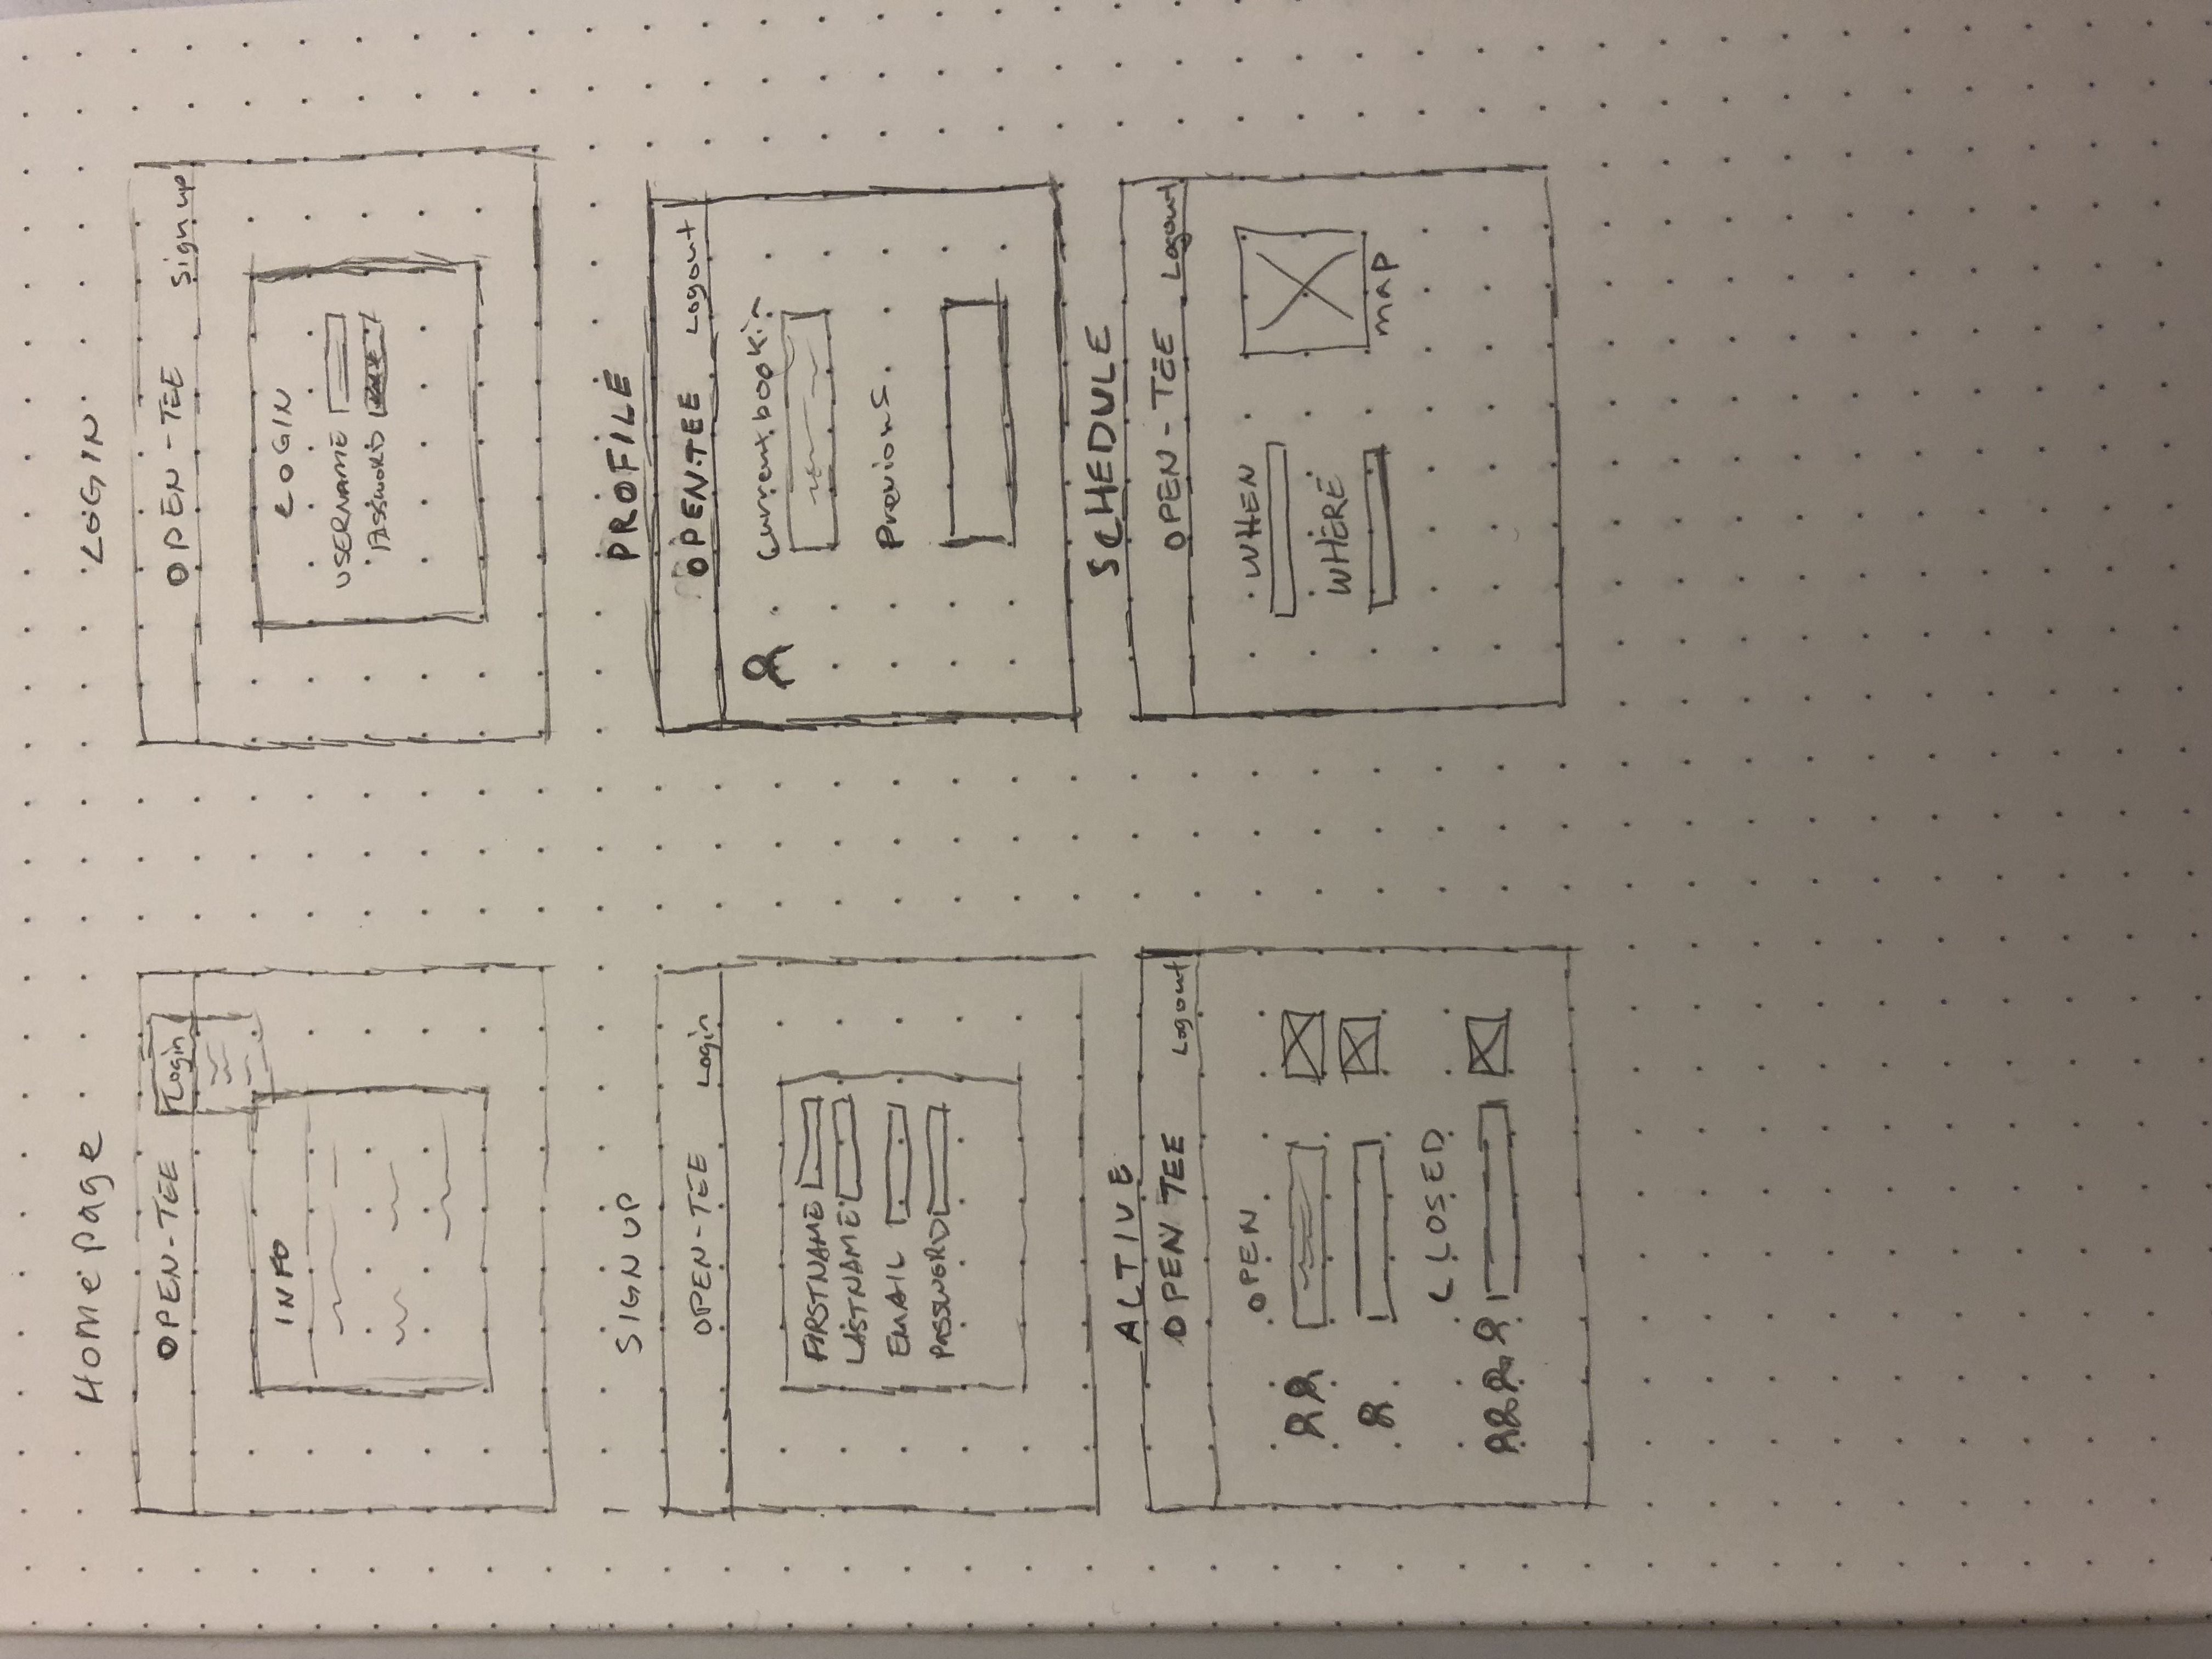 Homepage
OPEN-TEE Login
INFO
LOGIN
OPEN-TEE Sign up
LOGIN
USERNAME
PASSWORD
SIGN UP
OPEN-TEE Login
FIRSTNAME
LASTNAME
EMAIL
PASSWORD
PROFILE
OPEN-TEE Logout
Current bookin
Previous
ACTIVE
OPEN TEE Logout
OPEN
CLOSED
SCHEDULE
OPEN-TEE Logout
WHEN
WHERE
map